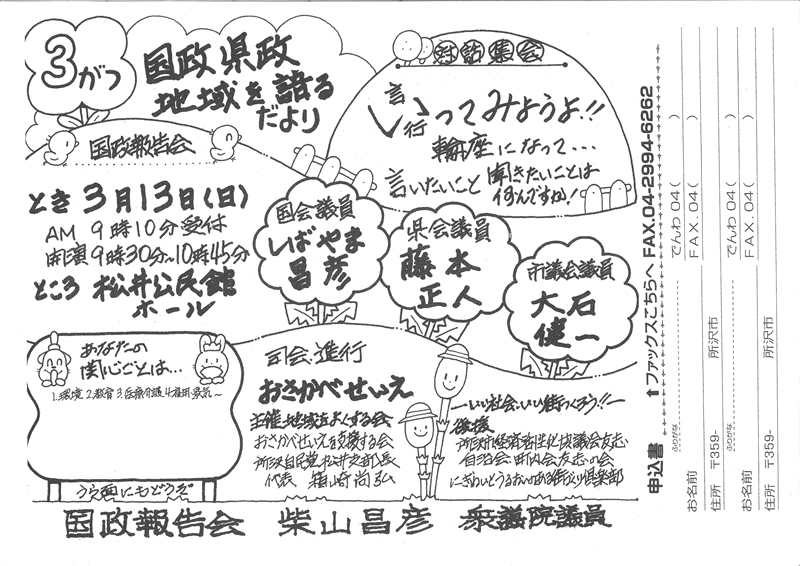 3がつ
国政県政
地域を語る
だより
対話集会
言行ってみようよ!!
輪座になって・・・
言いたいこと 聞きたいことは
何んですか!
国政報告会
とき 3月13日(日)
AM 9時10分受付
開演9時30分~10時45分
ところ 松井公民館
ホール
国会議員
しばやま
昌彦
県会議員
藤本
正人
市議会議員
大石
健一
あなたの
関心ごとは…
1.環境 2.教育 3.医療介護 4.雇用・景気~
うら面にもどうぞ
司会・進行
おさかべせいえ
主催・地域をよくする会
おさかべせいえを支援する会
所沢自民党松井支部長
代表
尚弘
―いい社会・いい街つくろう!!―
後援
所沢市経済活性化協議会有志
自治会・町内会有志の会
にぎわいとうるおいのある街づくり倶楽部
国政報告会 柴山昌彦 衆議院議員
申込書 ⬆ファックスこちらへ FAX.04-2994-6262
ふりがな
お名前 でんわ 04( )
FAX. 04( )
住所 〒359- 所沢市
ふりがな
お名前 でんわ 04( )
FAX. 04( )
住所 〒359- 所沢市